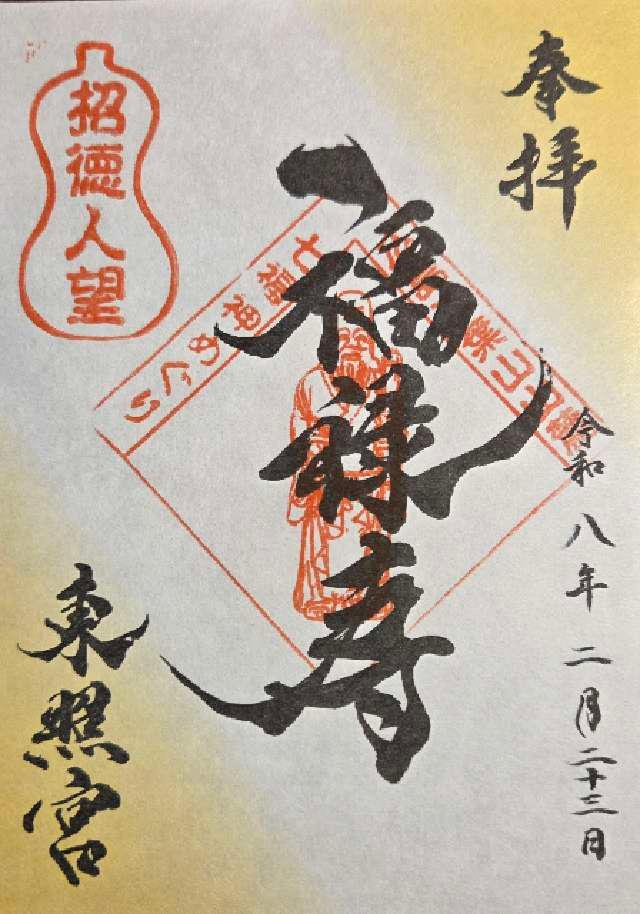 奉拝
令和八年二月二十三日
福禄寿
七福神めぐり
招徳人望
東照宮